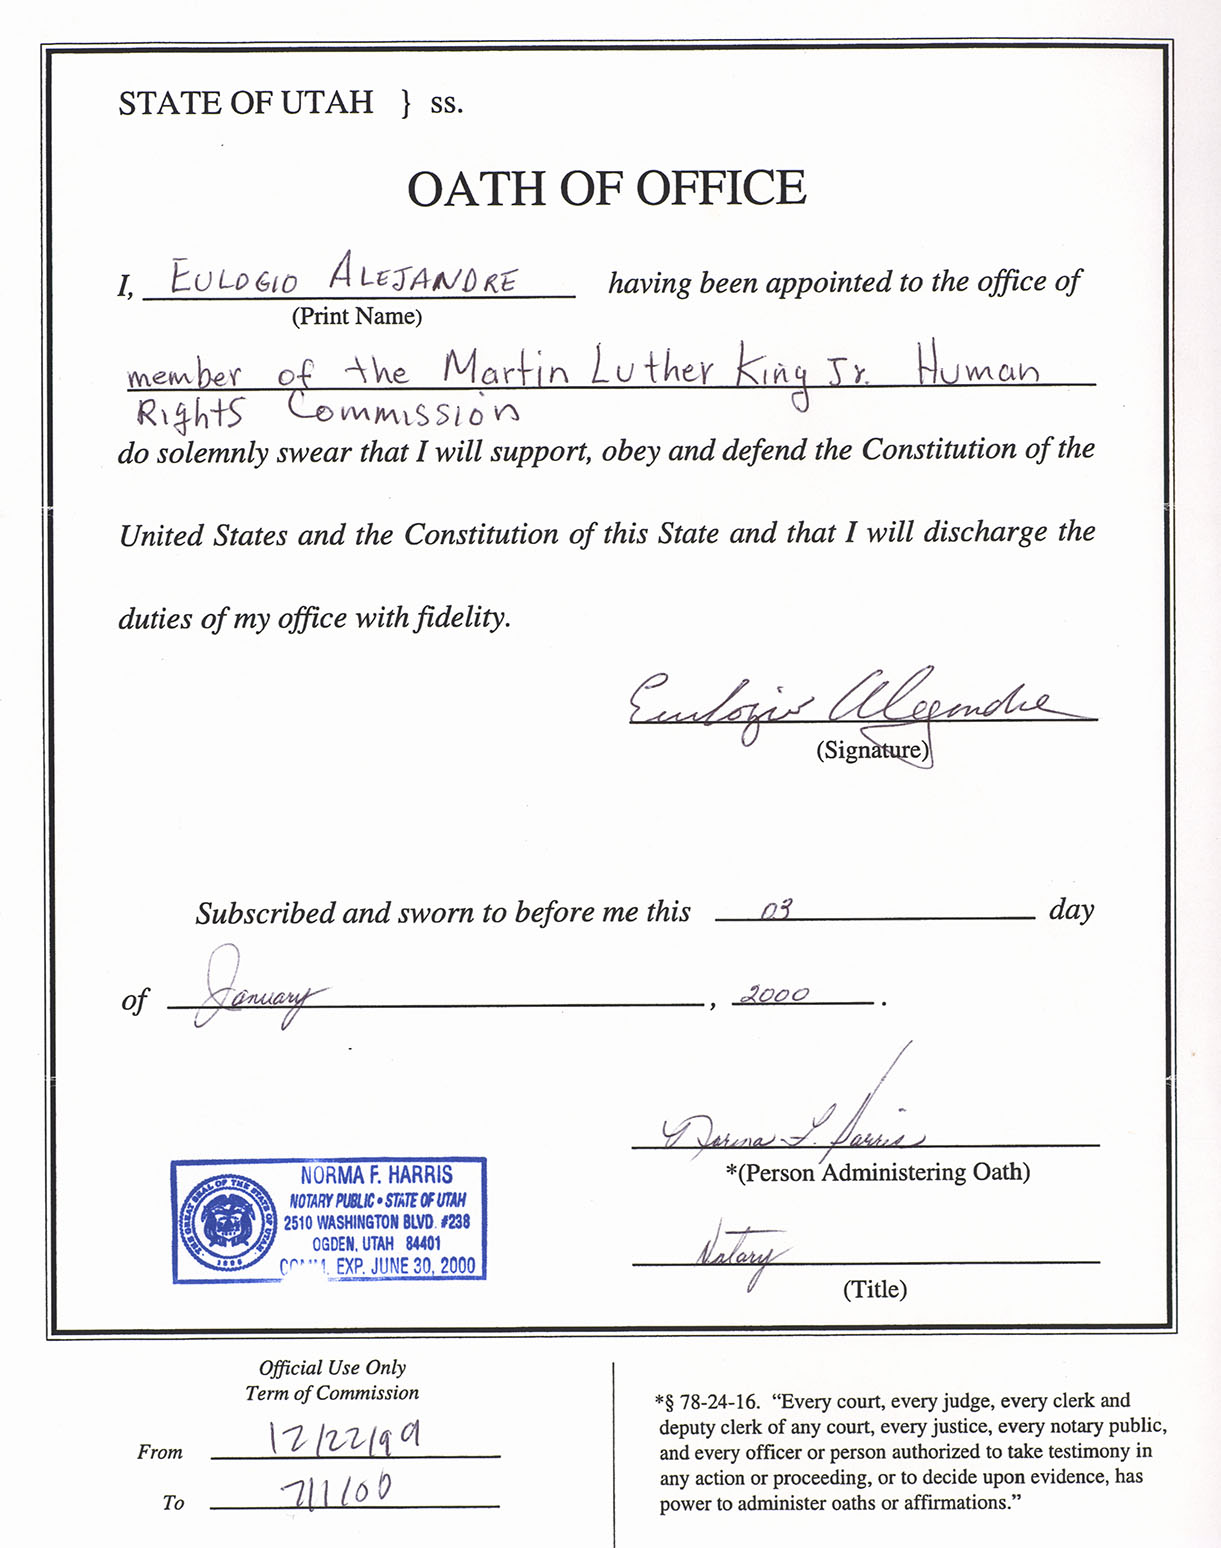 STATE OF UTAH } ss.
OATH OF OFFICE
I, EULOGIO ALEJANDRE having been appointed to the office of
(Print Name)
member of the Martin Luther King Jr. Human
Rights Commission
do solemnly swear that I will support, obey and defend the Constitution of the
United States and the Constitution of this State and that I will discharge the
duties of my office with fidelity.
Eulogio Alejandre
(Signature)
Subscribed and sworn to before me this 03 day
of January, 2000.
Norma F. Harris
*(Person Administering Oath)
NORMA F. HARRIS
NOTARY PUBLIC • STATE OF UTAH
2510 WASHINGTON BLVD. #238
OGDEN, UTAH 84401
COMM. EXP. JUNE 30, 2000
THE GREAT SEAL OF THE STATE OF UTAH
1896
Notary
(Title)
Official Use Only
Term of Commission
From 12/22/99
To 7/1/00
*§ 78-24-16. “Every court, every judge, every clerk and
deputy clerk of any court, every justice, every notary public,
and every officer or person authorized to take testimony in
any action or proceeding, or to decide upon evidence, has
power to administer oaths or affirmations.”